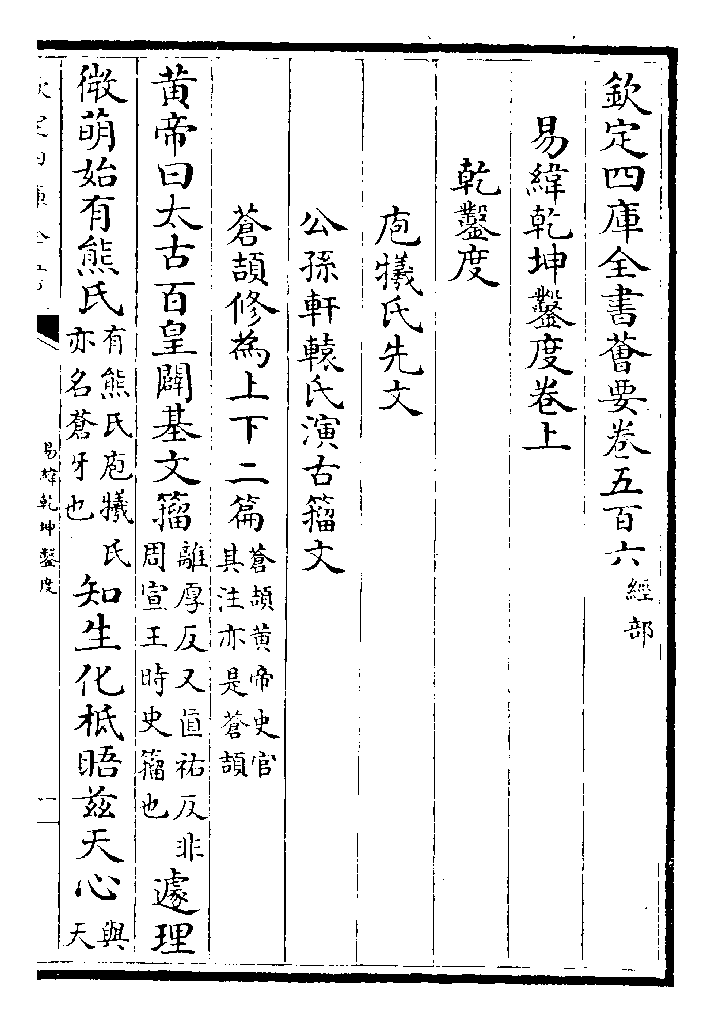 欽定四庫全書薈要卷五百六經部
易緯乾坤鑿度卷上
乾鑿度
庖犧氏先文
公孫軒轅氏演古籀文
蒼頡修為上下二篇蒼頡黃帝史官其注亦是蒼頡
黄帝曰太古百皇闢基文籀離厚反又直祐反非周宣王時史籀也遽理
微萌始有熊氏有熊氏庖犧氏亦名蒼牙也知生化柢晤茲天心與天
易緯乾坤鑿度
一